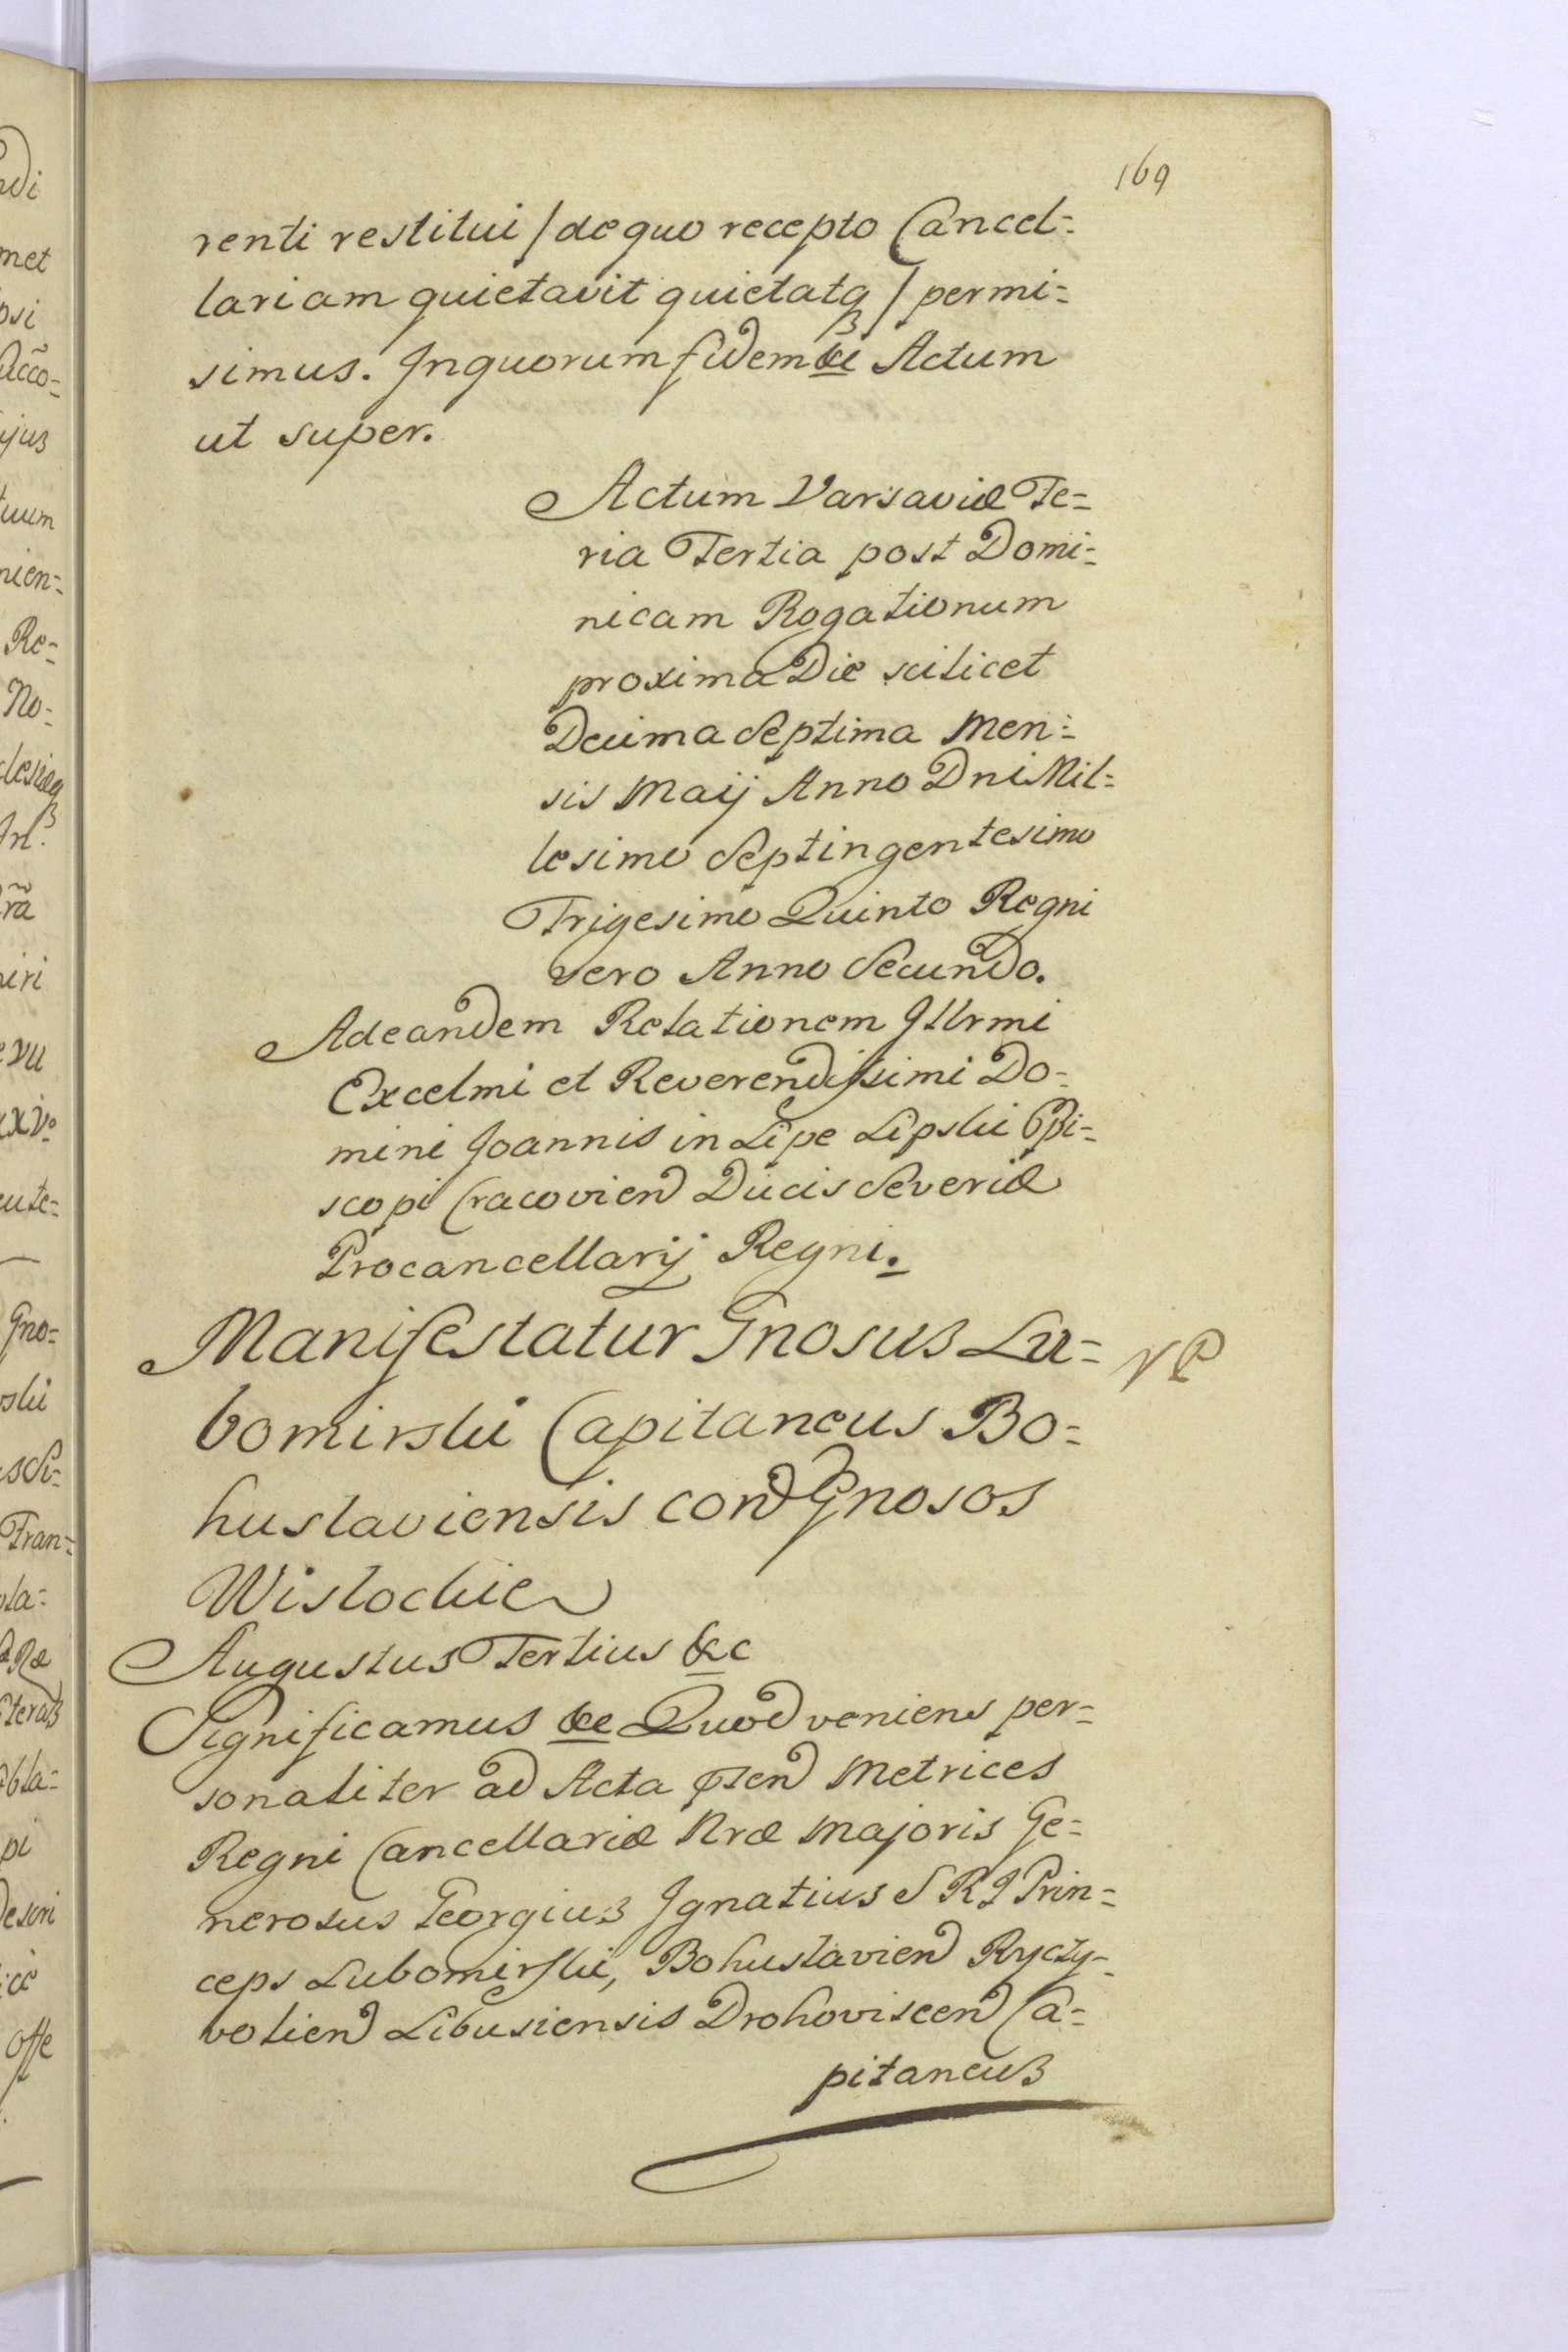 169
renti restitui / de quo recepto Cancel=
lariam quietavit quietatq / permi=
simus. Inquorum fidem &c Actum
ut super.
Actum Varsaviæ Fe=
ria Tertia post Domi=
nicam Rogationum
proxima Die scilicet
Decima Septima Men=
sis Maij Anno Dni Mil=
lesimo Septingentesimo
Trigesimo Quinto Regni
vero Anno Secundo.
Ad eandem Relationem Illrmi
Excelmi et Reverendissimi Do=
mini Joannis in Lipe Lipski Epi=
scopi Cracovien Ducis Severiæ
Procancellarij Regni.
Manifestatur Gnosus Lu=
bomirski Capitaneus Bo=
huslaviensis con Gnosos
Wislockie
Augustus Tertius &c
Significamus &c Quod veniens per=
sonaliter ad Acta pten Metrices
Regni Cancellariæ Nræ Majoris Ge=
nerosus Georgius Ignatius S R I Prin=
ceps Lubomirski, Bohuslavien Ryczy=
volien Libusiensis Drohoviscen Ca=
pitaneus